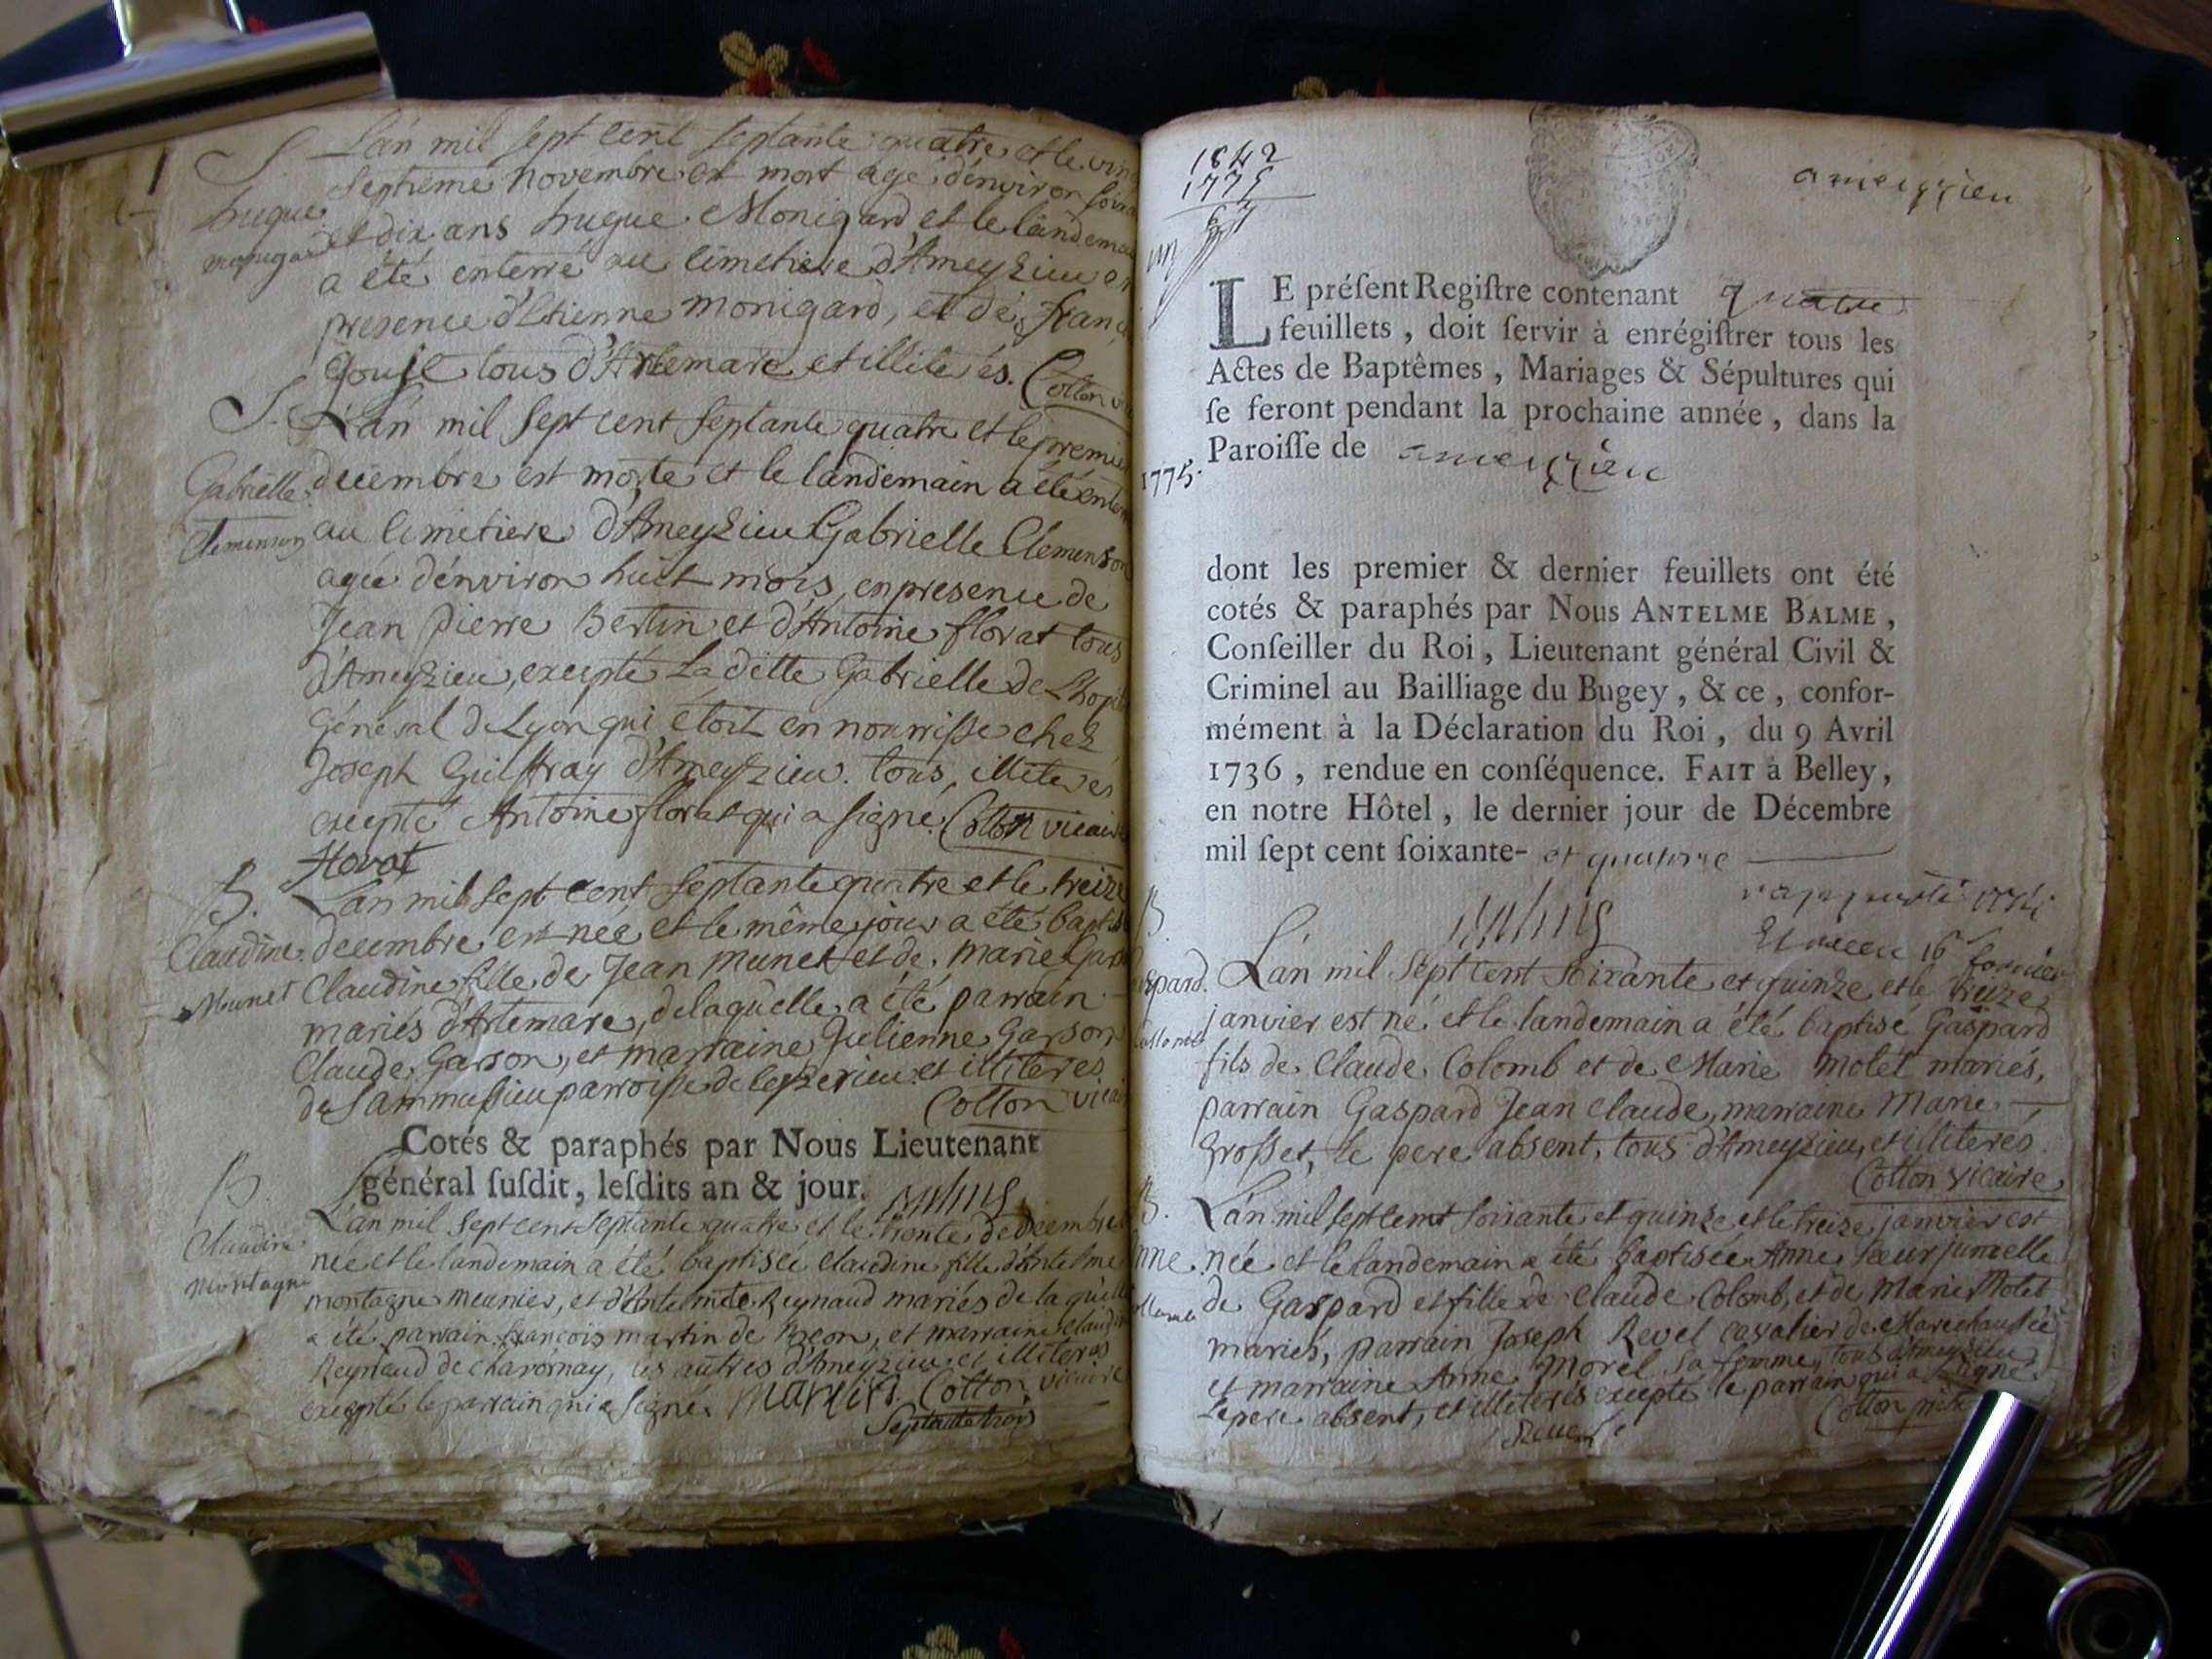 S. L'an mil sept cent septante quatre et le vin
septieme novembre est mort agé d'environ soixa
hugue et dix ans hugue Monigard et le landemai
monigard a été enterré au cimetiere d'Ameyzieu en
presence d'Etienne monigard, et de franç
Gouje tous d'Artemare et illiterés. Cotton vi
S. L'an mil sept cent septante quatre et le premie
Gabrielle decembre est morte et le landemain a été enter
Clemenson au cimetiere d'Ameyzieu Gabrielle Clemenson
agée d'environ huit mois, en presence de
Jean pierre Bertin et d'Antoine florat tous
d'Ameyzieu, excepté Laditte Gabrielle de L'hopit
Général de Lyon qui étoit en nourrisse chez
Joseph Guilfray d'Ameyzieu. tous illiterés
excepté Antoine florat qui a signé. Cotton vicaire
florat
B. L'an mil sept cent septante quatre et le treize
Claudine decembre est née et le même jour a été baptis
Munet Claudine fille de Jean Munet et de Marie Gars
mariés d'Artemare, de laquelle a été parrain
Claude Garson, et marraine Julienne Garson
de Sammassieu parroisse de et illiteres
Cotton vicai
Cotés & paraphés par Nous Lieutenant
général suſdit, leſdits an & jour.
B. L'an mil sept cent septante quatre et le trente decembre
Claudine née et le landemain a été baptisée Claudine fille d'Antelme
Montagne montagne meunier, et d'Antelmete Reynaud mariés de laquelle
a été parrain françois martin de, et marraine Claudine
Reynaud de Chavornay, les autres d'Ameyzieu et illiteres
excepté le parrain qui a signé. Martin. Cotton vicaire
Septante trois
1842
1775
67
ameyzieu
LE préſent Regiſtre contenant quatre
feuillets, doit ſervir à enrégiſtrer tous les
Actes de Baptêmes, Mariages & Sépultures qui
ſe feront pendant la prochaine année, dans la
Paroiſſe de ameyzieu
1775.
dont les premier & dernier feuillets ont été
cotés & paraphés par Nous ANTELME BALME,
Conſeiller du Roi, Lieutenant général Civil &
Criminel au Bailliage du Bugey, & ce, confor-
mément à la Déclaration du Roi, du 9 Avril
1736, rendue en conſéquence. FAIT à Belley,
en notre Hôtel, le dernier jour de Décembre
mil ſept cent ſoixante- et quatorze
B.
Gaspard. L'an mil Sept cent soixante et quinze et le treize
Collomb janvier est né et le landemain a été baptisé Gaspard
fils de Claude Colomb et de Marie Motet mariés,
parrain Gaspard Jean claude, marraine Marie
Grosset, le pere absent, tous d'Ameyzieu, et illiterés
Cotton vicaire
B. L'an mil sept cent soixante et quinze et le treize janvier est
Anne née et le landemain a été baptisée Anne sœur jumelle
Collomb de Gaspard et fille de Claude Colomb, et de Marie Motet
mariés, parrain Joseph Revel cavalier de Marechaussée
et marraine Anne Morel sa femme, tous d'Ameyzieu
le pere absent, et illiterés excepté le parrain qui a signé.
Cotton
Revel